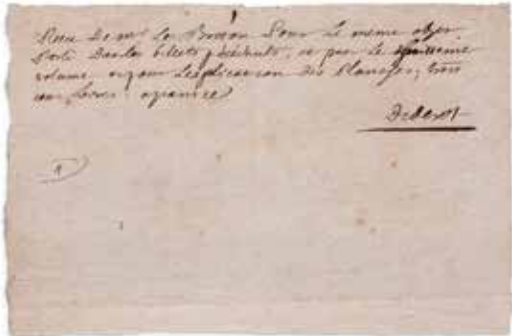 Reçu de mr Le Breton Pour Le meme objet
Porté Dans les billets précédents, et pour Le
volume, et pour L'explication des Planches, trois
cent livres. a paris ce
Diderot
1